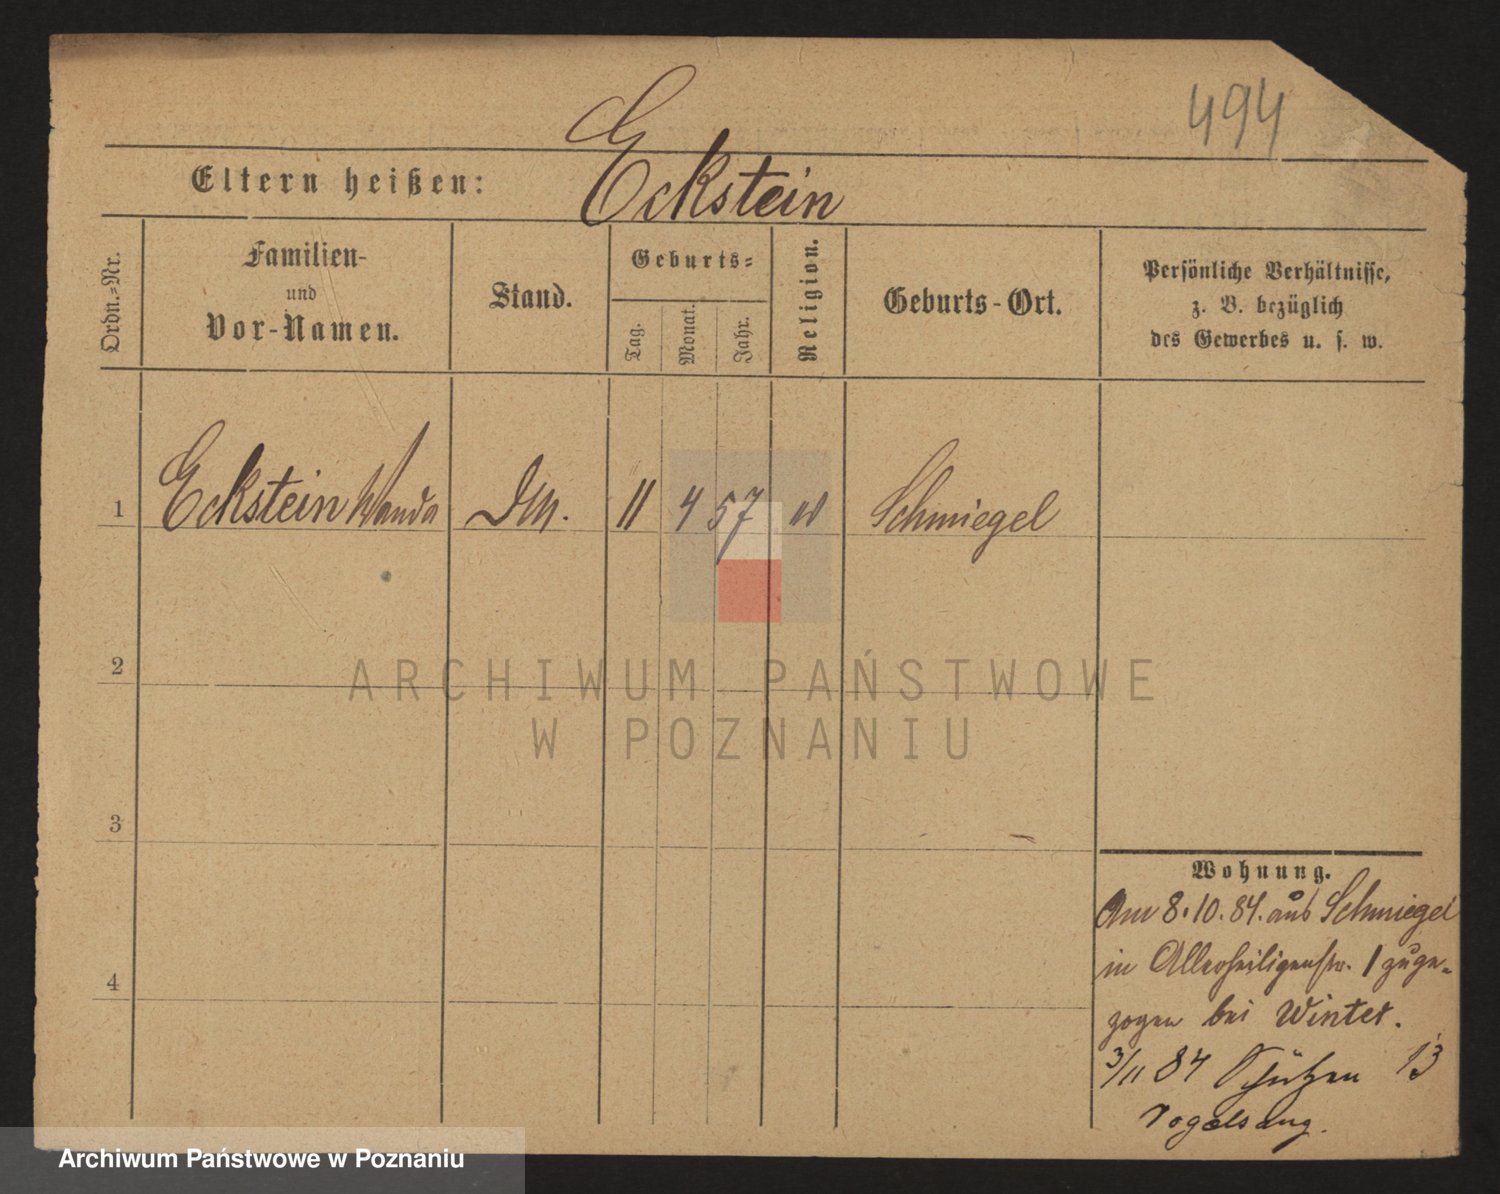 494
Eltern heißen: Eckstein
Ordn.=Nr.
Familien-
und
Vor-Namen.
Stand.
Geburts=
Tag.
Monat.
Jahr.
Religion.
Geburts-Ort.
Persönliche Verhältnisse,
z. B. bezüglich
des Gewerbes u. s. w.
1 Eckstein Wanda 11 4 57 Schmiegel
2
3
4
Wohnung.
Am 8.10.84. aus Schmiegel
in Allerheiligenstr. 1 zuge-
zogen bei Winter.
3/11 84 Schützen 13
Vogelsang.
ARCHIWUM PAŃSTWOWE
W POZNANIU
Archiwum Państwowe w Poznaniu